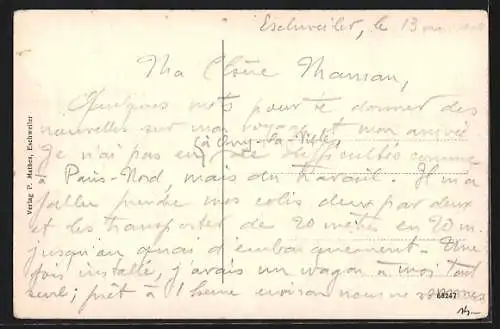 Eschweiler, le 13
Ma Chère Maman,
Quelques mots pour te donner des
nouvelles sur mon voyage et mon arrivée.
Je n'ai pas eu de difficultés comme
à Paris-Nord, mais du travail. Il m'a
fallu prendre mes colis deux par deux
et les transporter de 20 mètres en 20 m.
jusqu'au quai d'embarquement. Une
fois installé, j'avais un wagon à moi tout
seul; prêt à 1 heure environ nous ne sommes
Verlag P. Mathes, Eschweiler
68247